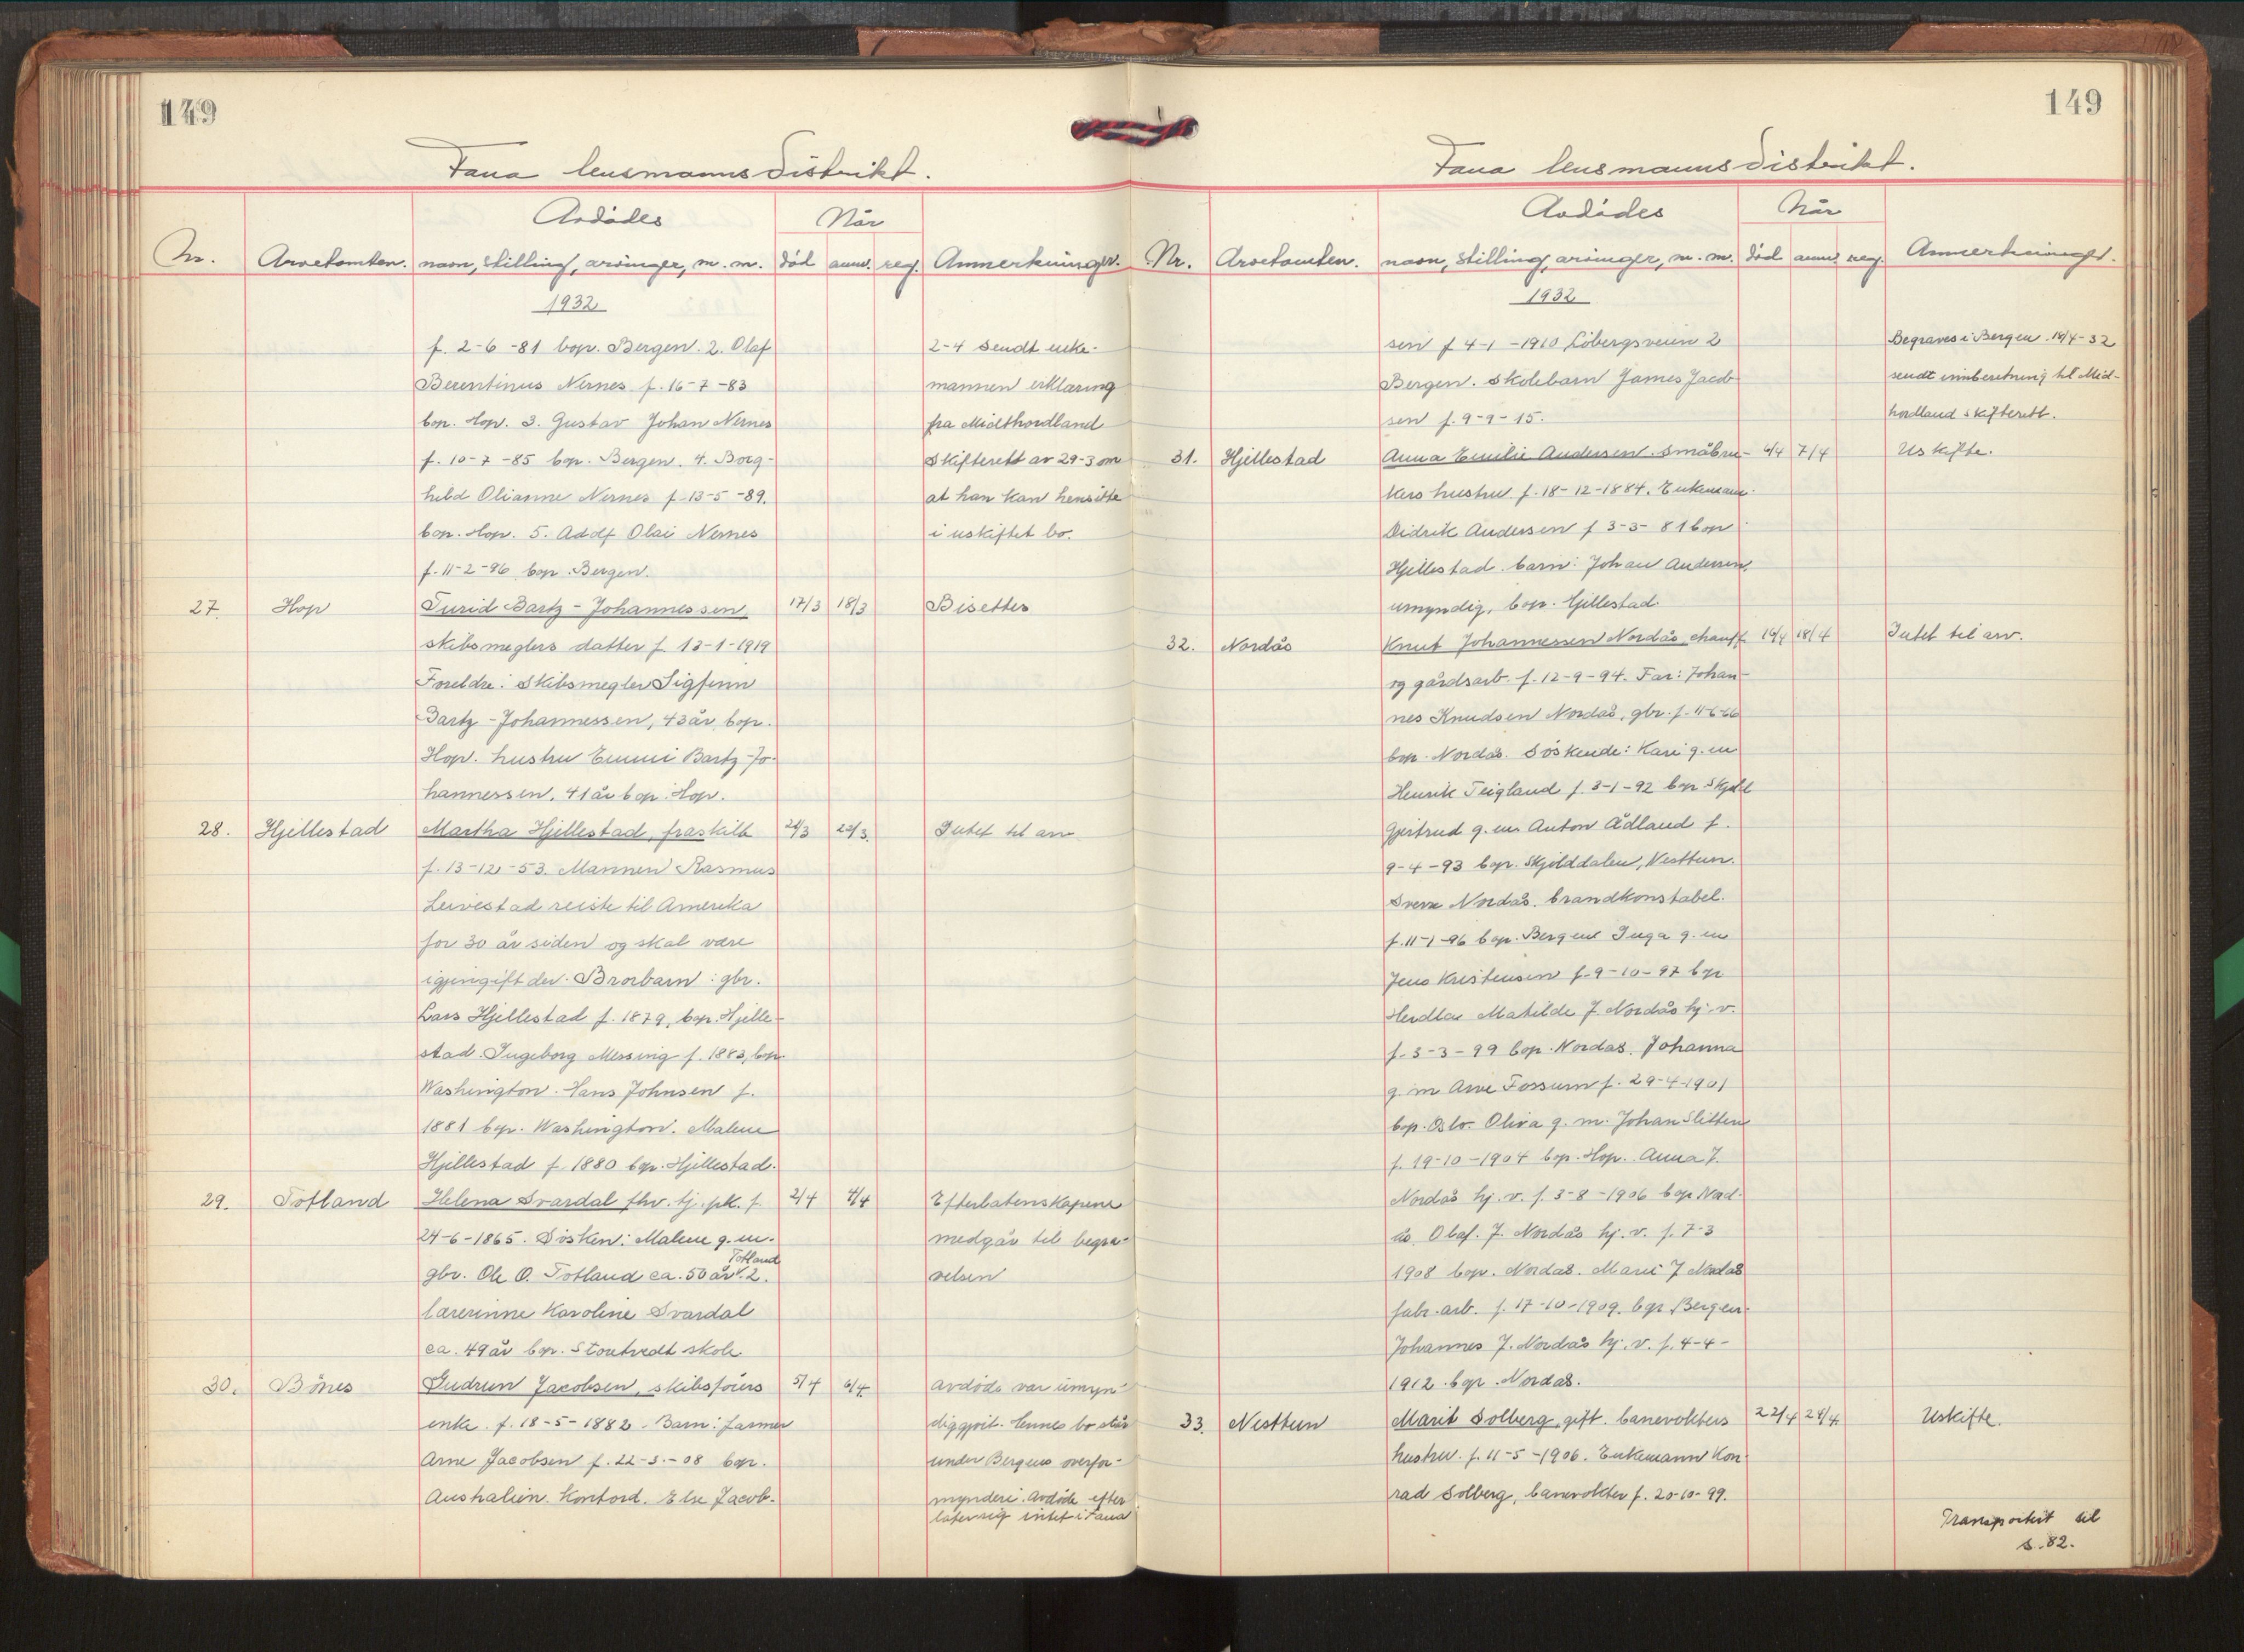 149
Fana lensmannsdistrikt.
Avdödes
Når
Nr. Arvetomten. navn, stilling, arvinger, m. m. död anm. reg. Anmerkninger.
1932
f. 2-6-81 bop. Bergen. 2. Olaf 2-4 sendt enke-
Berentinus Nernes f. 16-7-83 mannen erklæring
bop. Hop. 3. Gustav Johan Nernes fra Midthordland
f. 10-7-85 bop. Bergen. 4. Borg- Skifterett av 29-3 om
hild Olianne Nernes f. 13-5-89. at han kan hensitte
bop. Hop. 5. Adolf Olai Nernes i uskiftet bo.
f. 11-2-96 bop. Bergen.
27. Hop Turid Bartz-Johannessen 17/3 18/3 Bisettes
skibsmeglers datter f. 13-1-1919
Foreldre: Skibsmegler Sigfinn
Bartz-Johannessen, 43 år bop.
Hop. hustru Emmi Bartz-Jo-
hannessen, 41 år bop. Hop.
28. Hjellestad Martha Hjellestad, fraskilt Intet til arv
f. 13-12-53. Mannen Rasmus
Leivestad reiste til Amerika
for 30 år siden og skal være
igjengift der. Brorbarn: gbr.
Lars Hjellestad f. 1879, bop. Hjelle-
stad. Ingeborg Messing f. 1883, bop.
Washington. Hans Johnsen f.
1881 bop. Washington. Malene
Hjellestad f. 1880 bop. Hjellestad.
29. Totland Helena Svardal fhv. tj. pk. f. 2/4 4/4 Efterlatenskapene
24-6-1865. Sösken: Malene g. m. medgår til begra-
gbr. Ole O. Totland ca. 50 år Totland 2. velsen
lærerinne Karoline Svardal
ca. 49 år bop. Storetvedt skole
30. Bönes Gudrun Jacobsen, skibsförers 5/4 6/4 Avdöde var umyn-
enke. f. 18-5-1882. Barn: farmer diggjort. Hennes bo står
Arne Jacobsen f. 22-3-08 bop. under Bergens overfor-
Australien. Kontord. Else Jacob- mynderi. Avdöde efter
later sig intet i Fana
149
Fana lensmannsdistrikt.
Avdödes
Når
Nr. Arvetomten. navn, stilling, arvinger, m. m. död anm. reg. Anmerkninger.
1932
sen f 4-1-1910 Löbergsveien 2 Begraves i Bergen. 18/4-32
Bergen. Skolebarn James Jacob- sendt innberetning til Mid-
sen f. 9-9-15. hordland skifterett.
31. Hjellestad Anna Emilie Andersen. småbru- 6/4 7/4 Uskifte.
kers hustru f. 18-12-1884. Enkemann
Didrik Andersen f 3-3-81 bop
Hjellestad. barn: Johan Andersen,
umyndig, bop. Hjellestad.
32. Nordås Knut Johannessen Nordås, chauff. 16/4 18/4 Intet til arv.
og gårdsarb. f. 12-9-94. Far: Johan-
nes Knudsen Nordås, gbr. f. 11-6-66
bop. Nordås. Söskende: Kari g. m
Henrik Teigland f. 3-1-92 bop
Gjertrud g. m. Anton Ådland f.
9-4-93 bop. Skjolddalen, Nesttun.
Sverre Nordås. brandkonstabel.
f. 11-1-96 bop. Bergen Inga g. m
Jens Kristensen f. 9-10-97 bop
Herdla Matilde J. Nordås hj. v.
f. 3-3-99 bop. Nordås. Johanna
g. m Arne Fossum f. 29-4-1901
bop. Oslo. Oliva g. m. Johan Slitten
f. 19-10-1904 bop. Hop. Anna J.
Nordås hj. v. f. 3-8-1906 bop Nord-
ås. Olaf. J. Nordås hj. v. f. 7-3
1908 bop. Nordås. Marie J Nordås
fabr. arb. f. 17-10-1909. bop Bergen.
Johannes J. Nordås hj. v. f. 4-4-
1912. bop. Nordås.
33. Nesttun Marit Solberg gift. banevokters 22/4 24/4 Uskifte.
hustru. f. 11-5-1906. Enkemann Kon-
rad Solberg, banevokter f. 20-10-99.
Transportert til
s. 82.